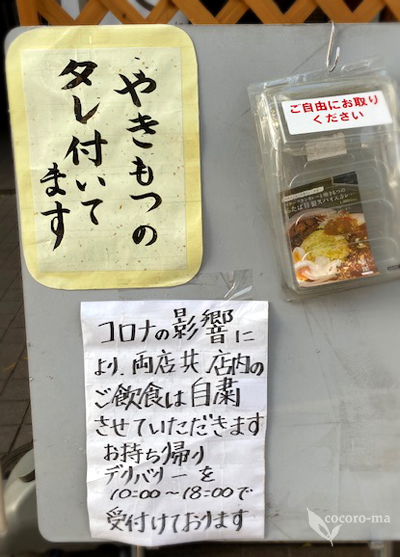 やきもつの
タレ付いて
ます
ご自由にお取り
ください
コロナの影響に
より、両店共 店内の
ご飲食は自粛
させていただきます
お持ち帰り
デリバリーを
10:00〜18:00で
受付けております
cocoro-ma